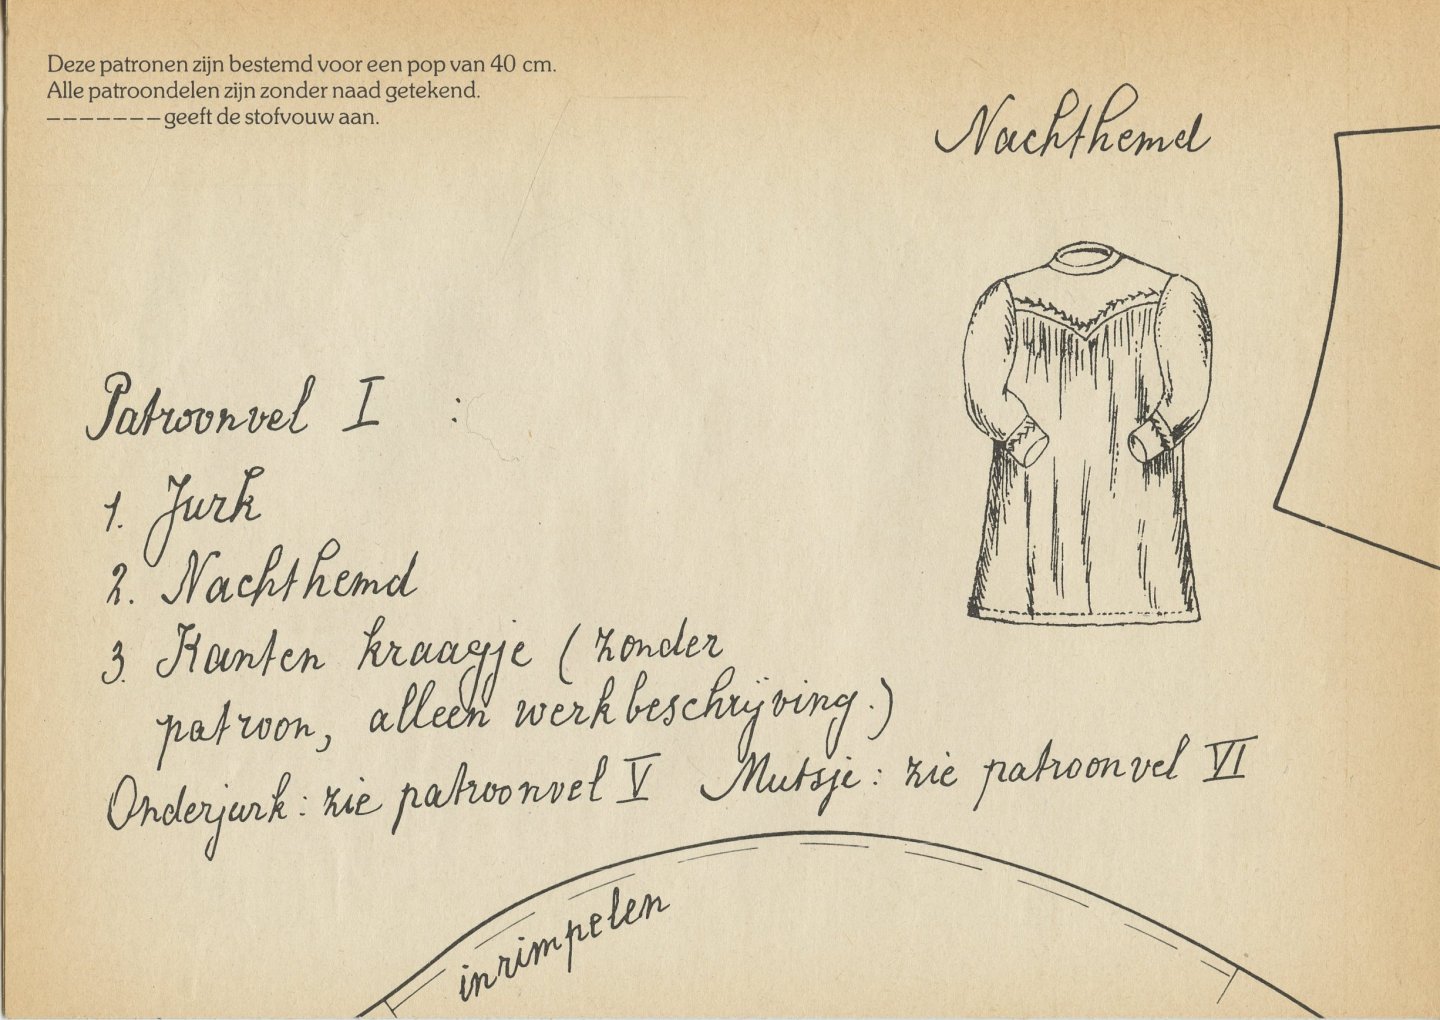 Deze patronen zijn bestemd voor een pop van 40 cm.
Alle patroondelen zijn zonder naad getekend.
------- geeft de stofvouw aan.
Nachthemd
Patroonvel I :
1. Jurk
2. Nachthemd
3. Kanten kraagje (zonder
patroon, alleen werkbeschrijving.)
Onderjurk: zie patroonvel V Mutsje: zie patroonvel VI
inrimpelen